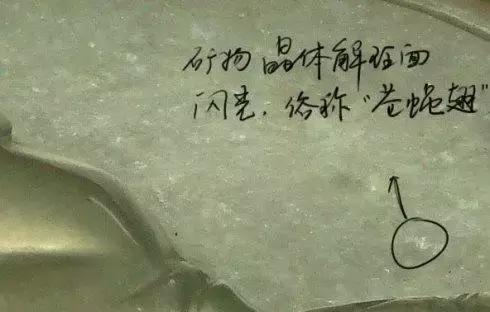 矿物晶体解理面
闪亮,俗称"苍蝇翅"